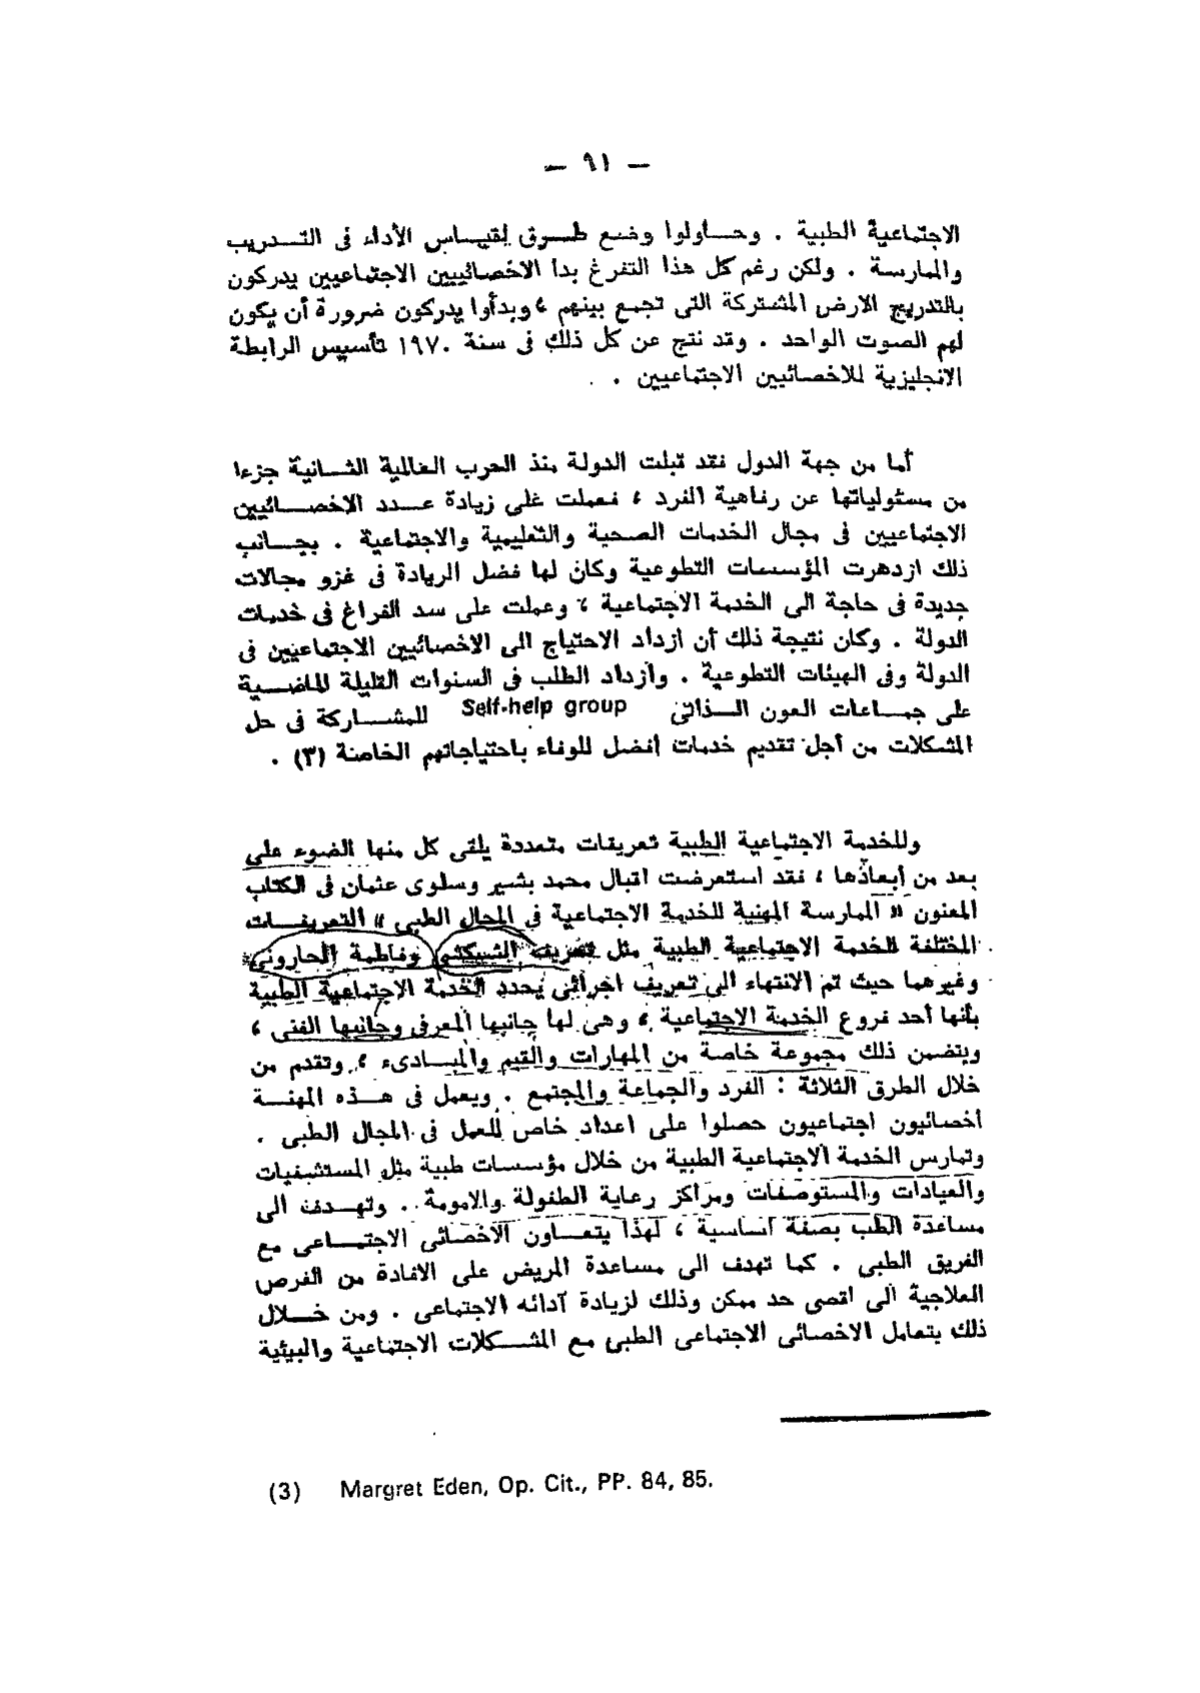 — ٩١ —
الاجتماعية الطبية . وحــاولوا وضع طـرق لقيــاس الأداء فى التــدريب
والممارسة . ولكن رغم كل هذا التفرغ بدأ الاخصائييين الاجتماعيين يدركون
بالتدريج الارض المشتركة التى تجمع بينهم ، وبدأوا يدركون ضرورة أن يكون
لهم الصوت الواحد . وقد نتج عن كل ذلك فى سنة ١٩٧٠ تأسيس الرابطة
الانجليزية للاخصائيين الاجتماعيين .
أما من جهة الدول فقد قبلت الدولة منذ الحرب العالمية الثــانية جزءا
من مسئولياتها عن رفاهية الفرد ، فعملت على زيادة عــدد الاخصــائيين
الاجتماعيين فى مجال الخدمات الصحية والتعليمية والاجتماعية . بجــانب
ذلك ازدهرت المؤسسات التطوعية وكان لها فضل الريادة فى غزو مجالات
جديدة فى حاجة الى الخدمة الاجتماعية ، وعملت على سد الفراغ فى خدمات
الدولة . وكان نتيجة ذلك أن ازداد الاحتياج الى الاخصائيين الاجتماعيين فى
الدولة وفى الهيئات التطوعية . وازداد الطلب فى السنوات القليلة الماضــية
على جمــاعات العون الــذاتى Self-help group للمشــاركة فى حل
المشكلات من أجل تقديم خدمات أفضل للوفاء باحتياجاتهم الخاصة (٣) .
وللخدمة الاجتماعية الطبية تعريفات متعددة يلقى كل منها الضوء على
بعد من أبعادها ، فقد استعرضت اقبال محمد بشير وسلوى عثمان فى الكتاب
المعنون « الممارسة المهنية للخدمة الاجتماعية فى المجال الطبى » التعريفــات
المختلفة للخدمة الاجتماعية الطبية مثل تعريف الشبكشى وفاطمة الحارونى
وغيرهما حيث تم الانتهاء الى تعريف اجرائى يحدد الخدمة الاجتماعية الطبية
بأنها أحد فروع الخدمة الاجتماعية ، وهى لها جانبها المعرفى وجانبها الفنى ،
ويتضمن ذلك مجموعة خاصة من المهارات والقيم والمبــادىء ، وتقدم من
خلال الطرق الثلاثة : الفرد والجماعة والمجتمع . ويعمل فى هــذه المهنــة
أخصائيون اجتماعيون حصلوا على اعداد خاص للعمل فى المجال الطبى .
وتمارس الخدمة الاجتماعية الطبية من خلال مؤسسات طبية مثل المستشفيات
والعيادات والمستوصفات ومراكز رعاية الطفولة والامومة . وتهــدف الى
مساعدة الطب بصفة أساسية ، لهذا يتعــاون الاخصائى الاجتمــاعى مع
الفريق الطبى . كما تهدف الى مساعدة المريض على الافادة من الفرص
العلاجية الى اقصى حد ممكن وذلك لزيادة آدائه الاجتماعى . ومن خــلال
ذلك يتعامل الاخصائى الاجتماعى الطبى مع المشــكلات الاجتماعية والبيئية
(3) Margret Eden, Op. Cit., PP. 84, 85.